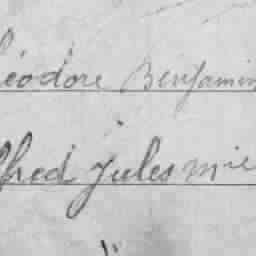 héodore Benjamin
lfred Jules Mie